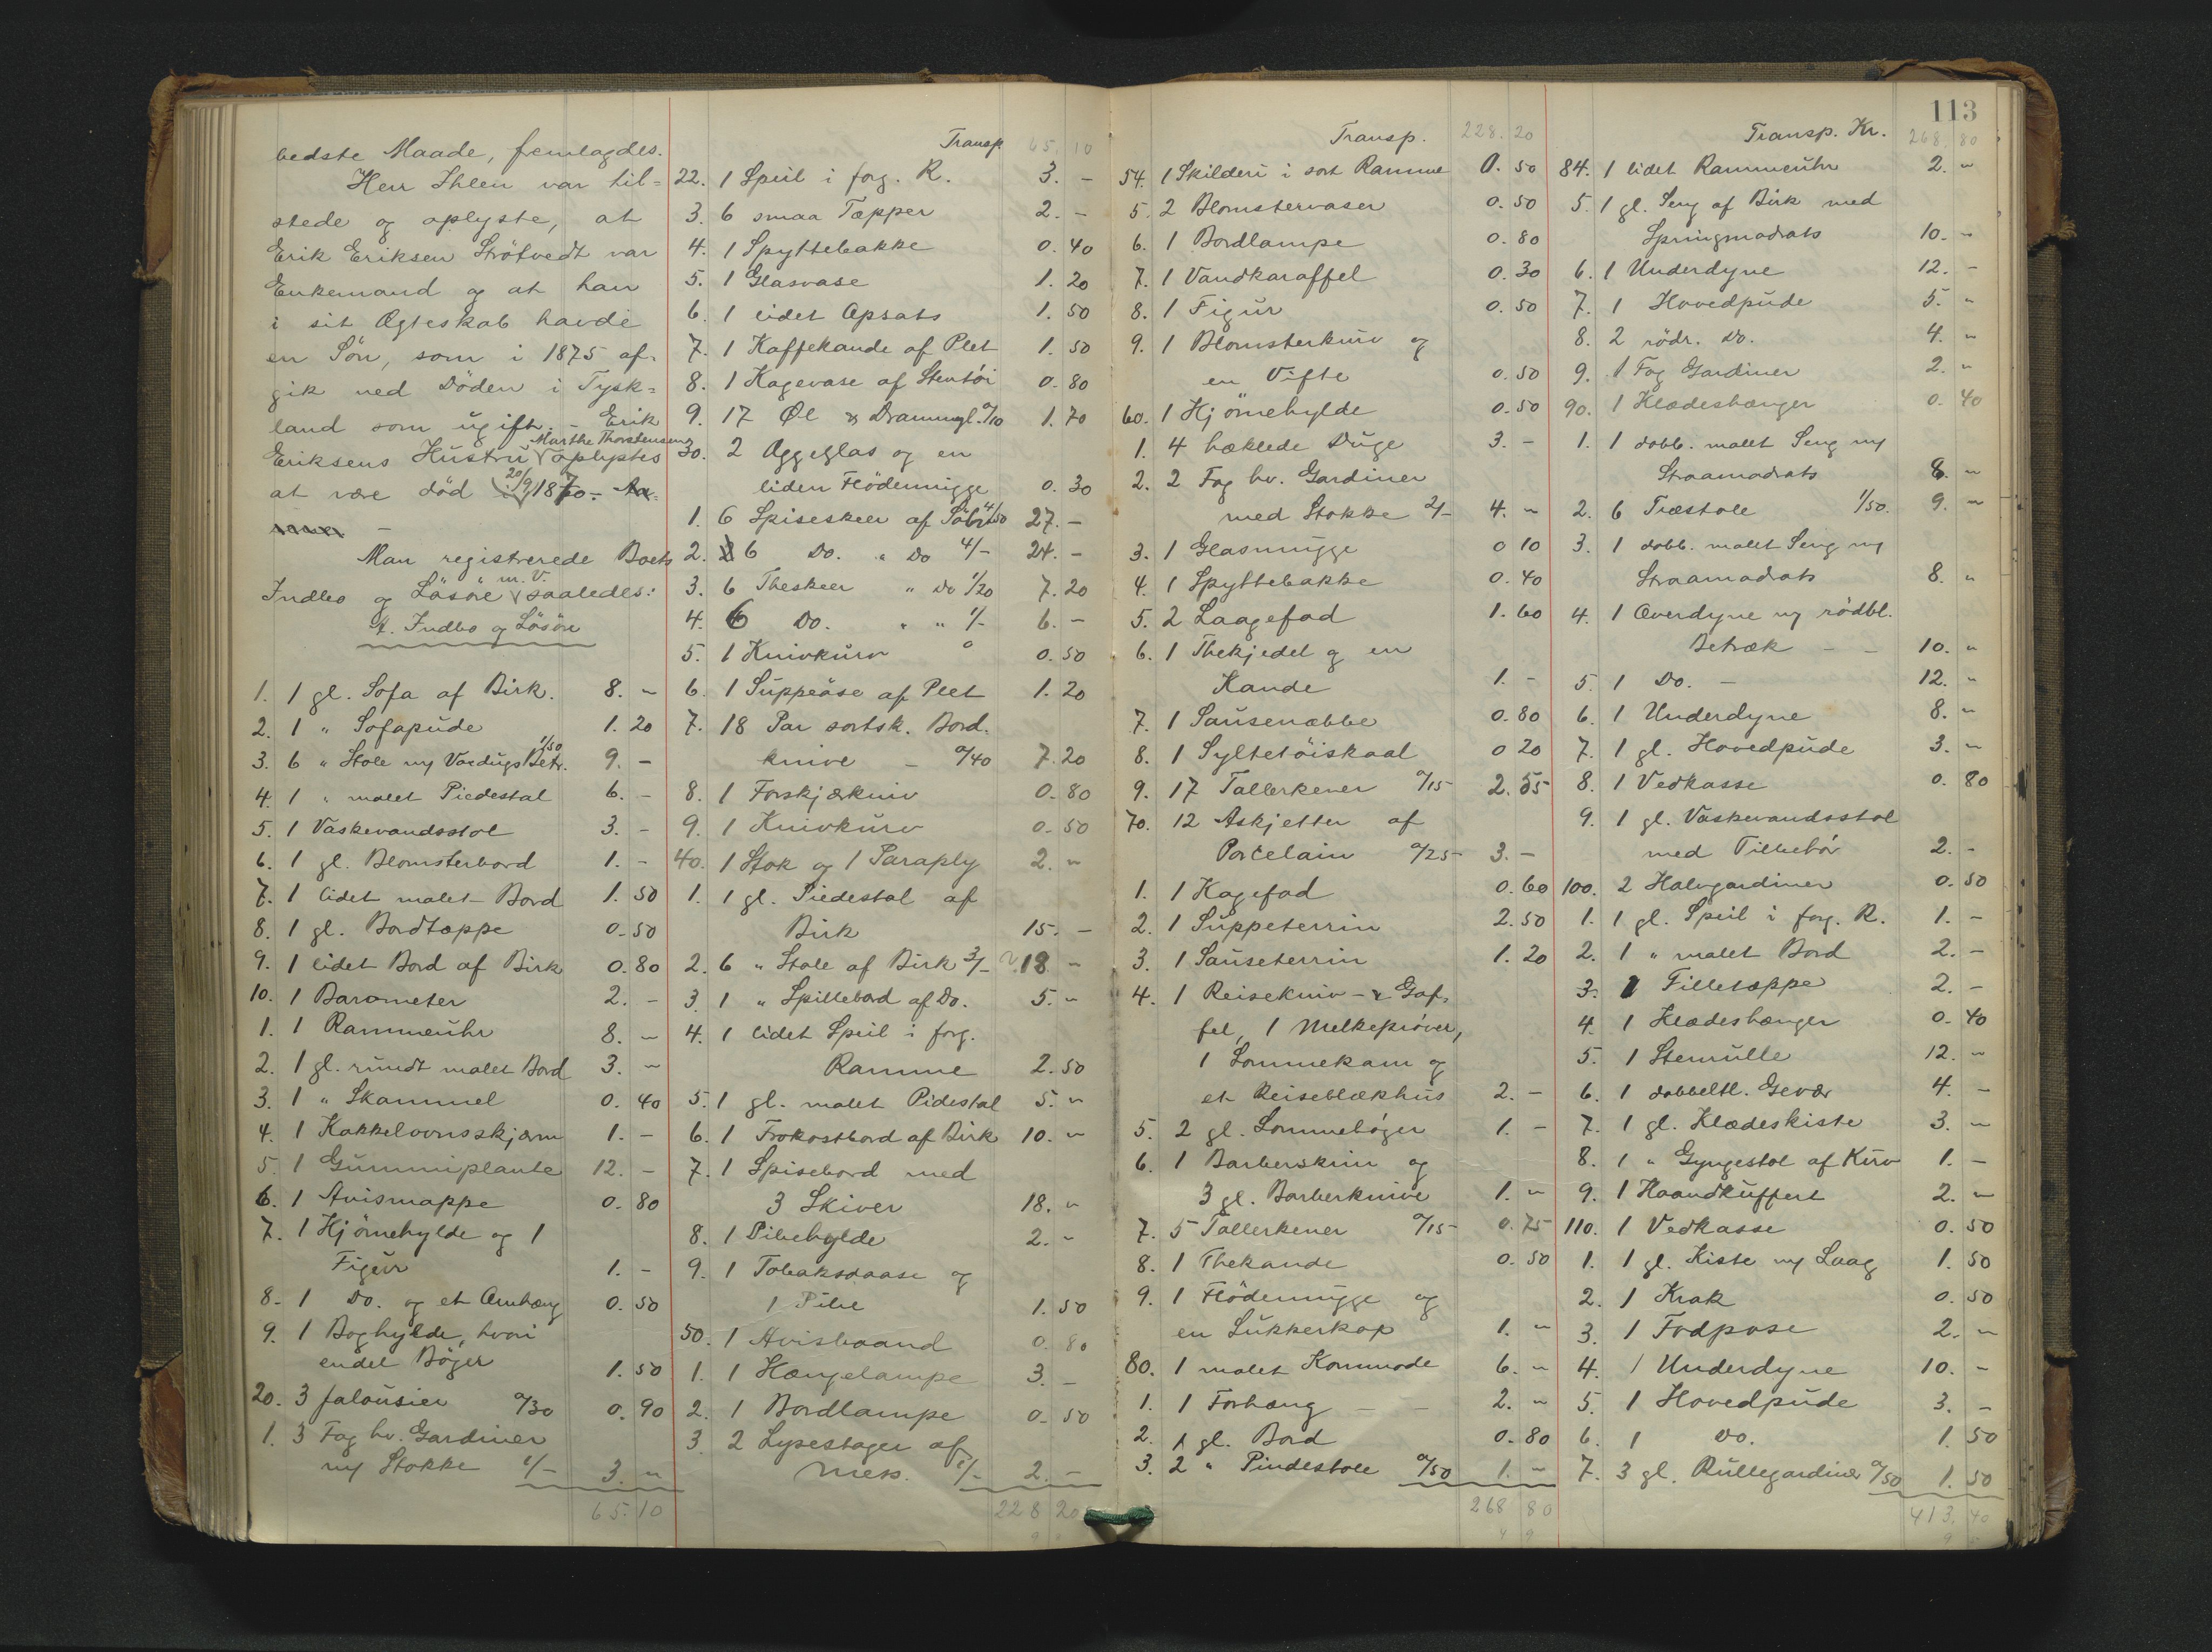 bedste Maade, fremlagdes.
Herr Ihlen var til=
stede og oplyste, at
Erik Eriksen Strötvedt var
Enkemand og at han
i sit Ægteskab havde
en Sön, som i 1875 af-
gik ved Döden i Tysk=
land som ugift. - Erik
Eriksens Hustru Marthe Thorstensen oplystes
at være död 20/9 1870.-
Man registrerede Boets
Indbo og Lösöre m.V. saaledes:
A. Indbo og Lösöre
1. 1 gl. Sofa af Birk. 8. "
2. 1 " Sofapude 1. 20
3. 6 " Stole m/ Voxdugs Betr. 1/50 9. -
4. 1 " malet Piedestal 6. -
5. 1 Vaskevandsstol 3. -
6. 1 gl. Blomsterbord 1. -
7. 1 lidet malet Bord 1. 50
8. 1 gl. Bordtæppe 0. 50
9. 1 lidet Bord af Birk 0. 80
10. 1 Barometer 2. -
1. 1 Rammeuhr 8. "
2. 1 gl. rundt malet Bord 3. "
3. 1 " Skammel 0. 40
4. 1 Kakkelovnsskjærm 1. -
5. 1 Gummiplante 12. -
6. 1 Avismappe 0. 80
7. 1 Hjörnehylde og 1
Figur 1. -
8. 1 Do. og et Omhæng 0. 50
9. 1 Boghylde, hvori
endel Böger 1. 50
20. 3 Jalousier a/30 0. 90
1. 3 Fag hv. Gardiner
m/ Stokke 1/- 3. "
65. 10
Transp. 65. 10
22. 1 Speil i forg. R. 3. -
3. 6 smaa Tæpper 2. -
4. 1 Spyttebakke 0. 40
5. 1 Glasvase 1. 20
6. 1 lidet Opsats 1. 50
7. 1 Kaffekande af Plet 1. 50
8. 1 Kagevase af Stentöi 0. 80
9. 17 Øl & Dramgl. a/10 1. 70
30. 2 Æggeglas og en
liden Flödemugge 0. 30
1. 6 Spiseskeer af Sölv 4/50 27. -
2. 6 Do. " Do 4/- 24. -
3. 6 Theskeer " Do 1/20 7. 20
4. 6 Do. " " 1/- 6. -
5. 1 Knivkurv 0. 50
6. 1 Suppeöse af Plet 1. 20
7. 18 Par sortsk. Bord-
knive - a/40 7. 20
8. 1 Forskjærkniv 0. 80
9. 1 Knivkurv 0. 50
40. 1 Stok og 1 Paraply 2. "
1. 1 gl. Piedestal af
Birk 15. -
2. 6 " Stole af Birk 3/- 18 "
3. 1 " Spillebord af Do. 5. "
4. 1 lidet Speil i forg.
Ramme 2. 50
5. 1 gl. malet Pidestal 5. "
6. 1 Frokostbord af Birk 10. "
7. 1 Spisebord med
3 Skiver 18. "
8. 1 Pibehylde 2. "
9. 1 Tobaksdaase og
1 Pibe 1. 50
50. 1 Avisbaand 0. 80
1. 1 Hængelampe 3. -
2. 1 Bordlampe 0. 50
3. 2 Lysestager af
Mess. 1/- 2. -
228 20
Transp. 228. 20
54. 1 Skilderi i sort Ramme 0. 50
5. 2 Blomstervaser 0. 50
6. 1 Bordlampe 0. 80
7. 1 Vandkaraffel 0. 30
8. 1 Figur 0. 50
9. 1 Blomsterkurv og
en Vifte 0. 50
60. 1 Hjörnehylde 0. 50
1. 4 hæklede Duge 3. -
2. 2 Fag hv. Gardiner
med Stokke 2/- 4. "
3. 1 Glasmugge 0 10
4. 1 Spyttebakke 0. 40
5. 2 Laagefad 1. 60
6. 1 Thekjedel og en
Kande 1. -
7. 1 Sausenæbbe 0. 80
8. 1 Syltetöiskaal 0 20
9. 17 Tallerkener a/15 2. 55
70. 12 Askjetter af
Porcelain a/25 3. -
1. 1 Kagefad 0. 60
2. 1 Suppeterrin 2. 50
3. 1 Sauseterrin 1. 20
4. 1 Reisekniv - & Gaf-
fel, 1 Melkepröver,
1 Lommekam og
et Reiseblækhus 2. -
5. 2 gl. Lommeböger 1. -
6. 1 Barberskrin og
3 gl. Barberknive 1. "
7. 5 Tallerkener a/15 0. 75
8. 1 Thekande 0. 50
9. 1 Flödemugge og
en Sukkerkop 1. "
80. 1 malet Kommode 6. "
1. 1 Forhæng - - 2. "
2. 1 gl. Bord 0. 80
3. 2 " Pindestole a/50 1. "
268 80
113
Transp. Kr. 268. 80
84. 1 lidet Rammeuhr 2. "
5. 1 gl. Seng af Birk med
Springmadrats 10. "
6. 1 Underdyne 12. -
7. 1 Hovedpude 5. "
8. 2 rödr. Do. 4. "
9. 1 Fag Gardiner 2. "
90. 1 Klædeshænger 0. 40
1. 1 dobb. malet Seng m/
Straamadrats 8. "
2. 6 Træstole 1/50. 9. "
3. 1 dobb. malet Seng m/
Straamadrats 8. "
4. 1 Overdyne m/ rödbl.
Betræk - - 10. "
5. 1 Do. - 12. "
6. 1 Underdyne 8. "
7. 1 gl. Hovedpude 3. "
8. 1 Vedkasse 0. 80
9. 1 gl. Vaskevandsstol
med Tilbehör 2. -
100. 2 Halvgardiner 0. 50
1. 1 gl. Speil i forg. R. 1. -
2. 1 " malet Bord 2. -
3. 1 Filletæppe 2. -
4. 1 Klædeshænger 0. 40
5. 1 Stenrulle 12. "
6. 1 dobbeltl. Gevær 4. -
7. 1 gl. Klædeskiste 3. "
8. 1 " Gyngestol af Kurv 1. -
9. 1 Haandkuffert 2. "
110. 1 Vedkasse 0. 50
1. 1 gl. Kiste m/ Laag 1. 50
2. 1 Krak 0. 50
3. 1 Fodpose 2. "
4. 1 Underdyne 10. -
5. 1 Hovedpude 3. -
6. 1 Do. 1. 50
7. 3 gl. Rullegardiner a/50 1. 50
413. 40